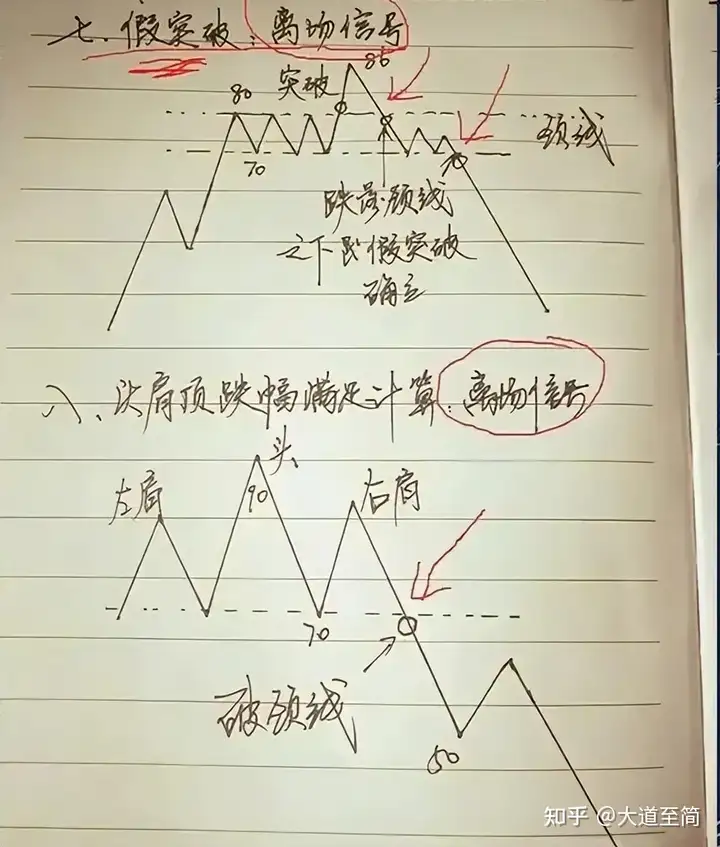 七、假突破：离场信号
86
80 突破
颈线
70
跌落颈线
之下民假突破
确立
八、头肩顶跌幅满足计算：离场信号
头
左肩 90 右肩
70
破颈线
50
知乎 @大道至简